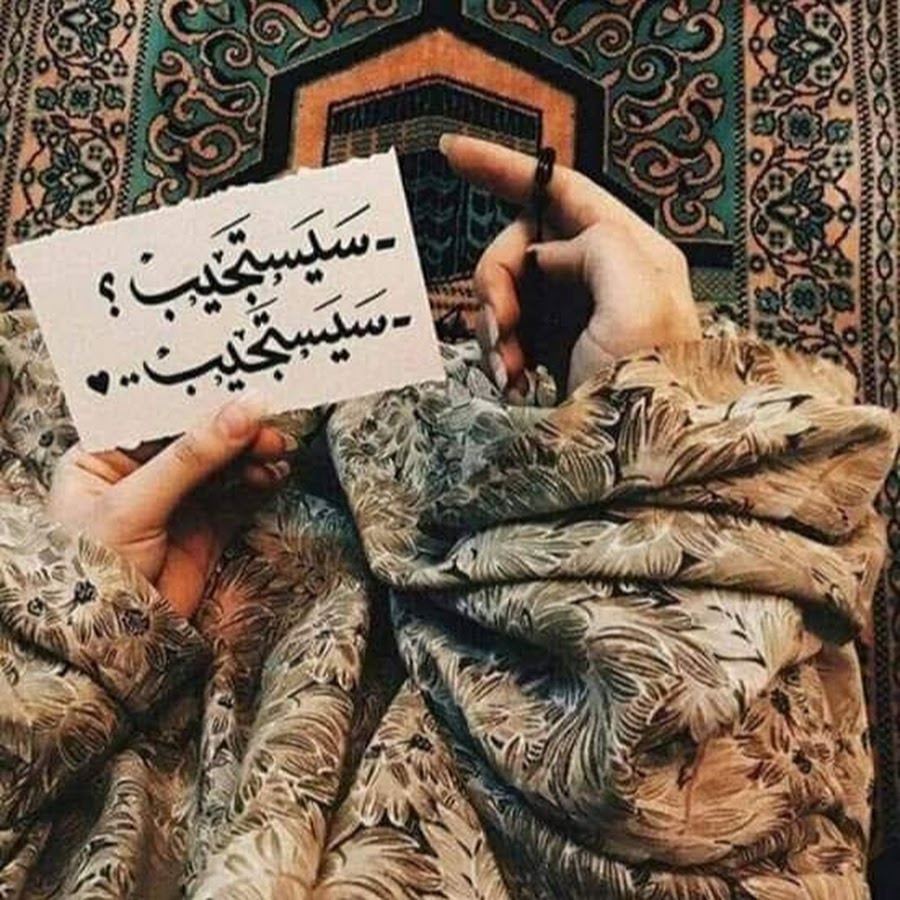 -سَيَستَجيبْ ؟
-سَيَستَجيبْ..♥